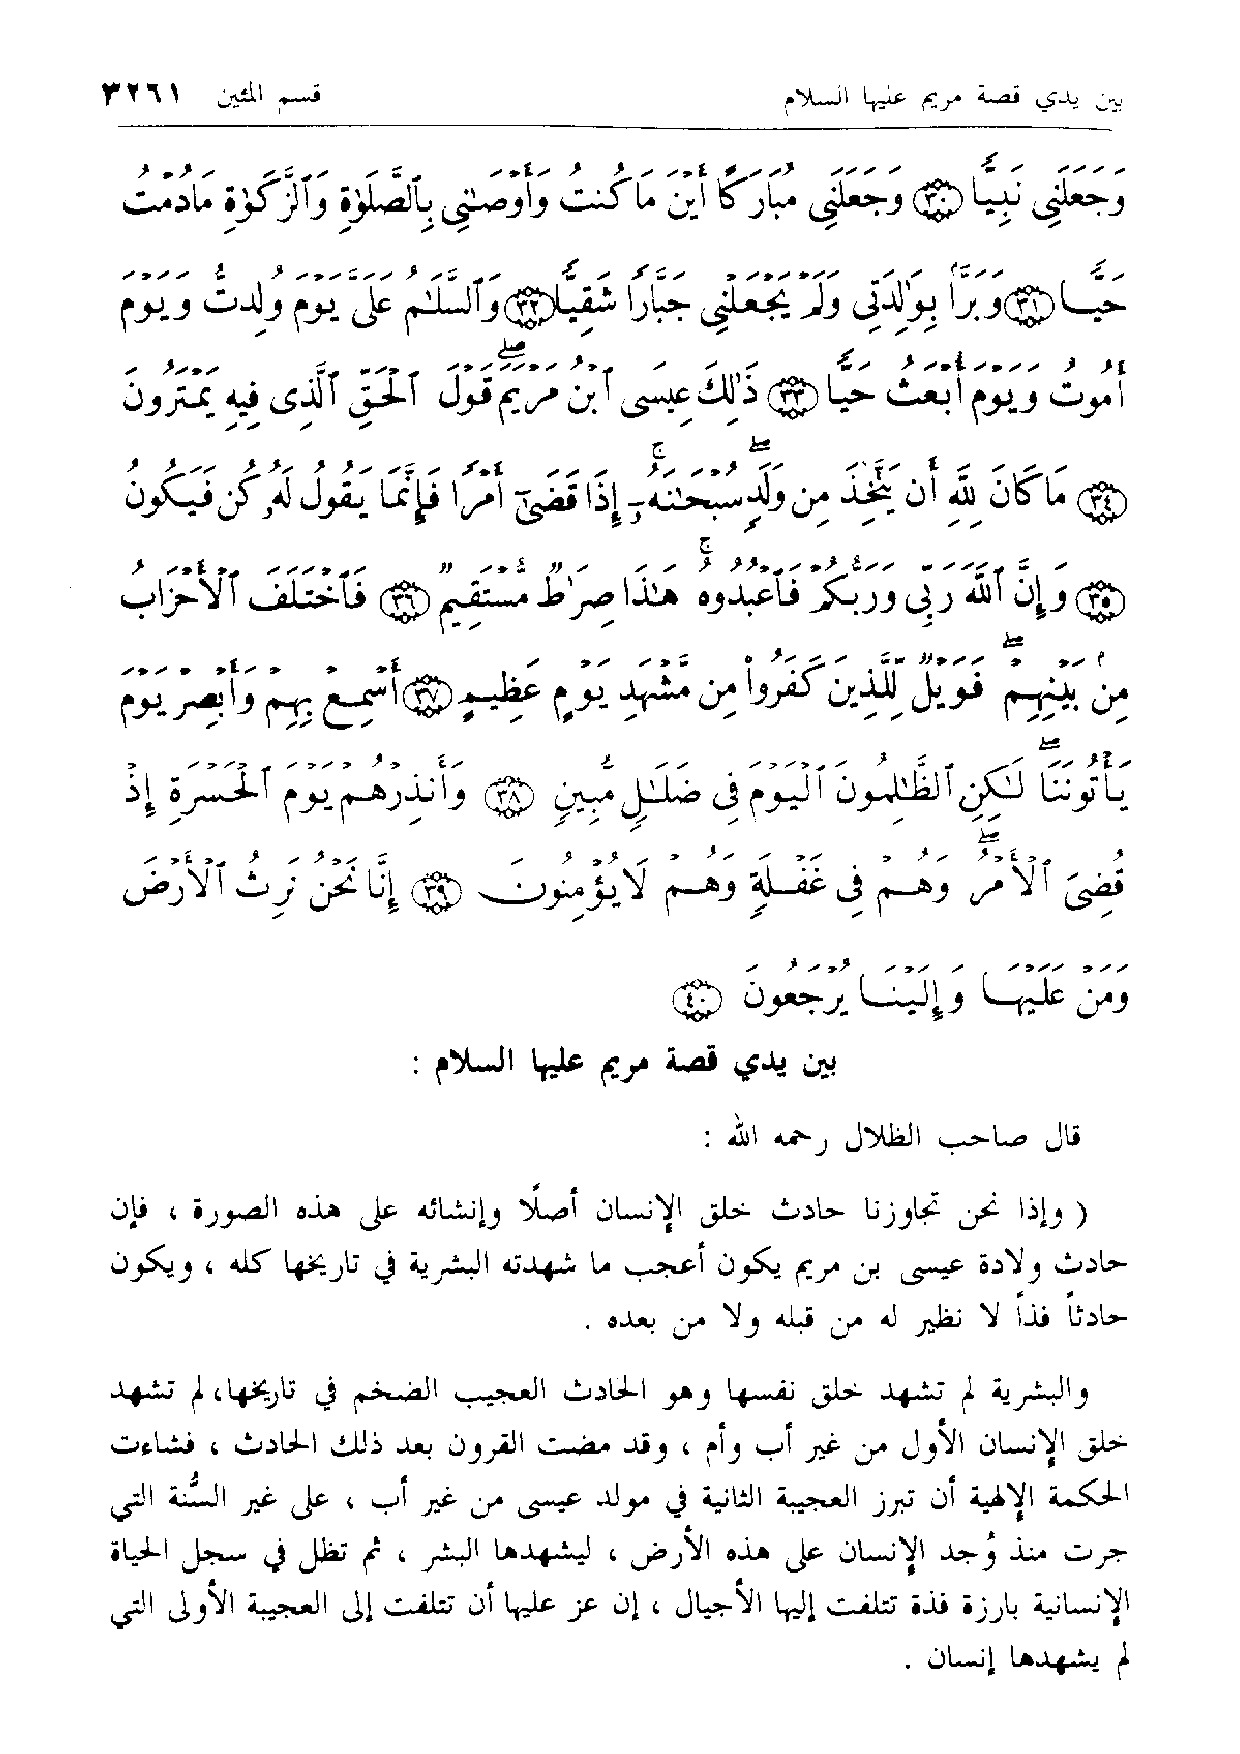 بين يدي قصة مريم عليها السلام قسم المئين ٣٢٦١
وَجَعَلَنِي نَبِيًّا ﴿٣٠﴾ وَجَعَلَنِي مُبَارَكًا أَيْنَ مَا كُنتُ وَأَوْصَٰنِي بِٱلصَّلَوٰةِ وَٱلزَّكَوٰةِ مَا دُمْتُ
حَيًّا ﴿٣١﴾ وَبَرًّا بِوَٰلِدَتِى وَلَمْ يَجْعَلْنِي جَبَّارًا شَقِيًّا ﴿٣٢﴾ وَٱلسَّلَٰمُ عَلَىَّ يَوْمَ وُلِدتُّ وَيَوْمَ
أَمُوتُ وَيَوْمَ أُبْعَثُ حَيًّا ﴿٣٣﴾ ذَٰلِكَ عِيسَى ٱبْنُ مَرْيَمَ ۖ قَوْلَ ٱلْحَقِّ ٱلَّذِى فِيهِ يَمْتَرُونَ
﴿٣٤﴾ مَا كَانَ لِلَّهِ أَن يَتَّخِذَ مِن وَلَدٍ ۖ سُبْحَٰنَهُۥٓ ۚ إِذَا قَضَىٰٓ أَمْرًا فَإِنَّمَا يَقُولُ لَهُۥ كُن فَيَكُونُ
﴿٣٥﴾ وَإِنَّ ٱللَّهَ رَبِّى وَرَبُّكُمْ فَٱعْبُدُوهُ ۚ هَٰذَا صِرَٰطٌ مُّسْتَقِيمٌ ﴿٣٦﴾ فَٱخْتَلَفَ ٱلْأَحْزَابُ
مِنۢ بَيْنِهِمْ ۖ فَوَيْلٌ لِّلَّذِينَ كَفَرُوا۟ مِن مَّشْهَدِ يَوْمٍ عَظِيمٍ ﴿٣٧﴾ أَسْمِعْ بِهِمْ وَأَبْصِرْ يَوْمَ
يَأْتُونَنَا ۖ لَٰكِنِ ٱلظَّٰلِمُونَ ٱلْيَوْمَ فِى ضَلَٰلٍ مُّبِينٍ ﴿٣٨﴾ وَأَنذِرْهُمْ يَوْمَ ٱلْحَسْرَةِ إِذْ
قُضِىَ ٱلْأَمْرُ ۖ وَهُمْ فِى غَفْلَةٍ وَهُمْ لَا يُؤْمِنُونَ ﴿٣٩﴾ إِنَّا نَحْنُ نَرِثُ ٱلْأَرْضَ
وَمَنْ عَلَيْهَا وَإِلَيْنَا يُرْجَعُونَ ﴿٤٠﴾
بين يدي قصة مريم عليها السلام :
قال صاحب الظلال رحمه الله :
( وإذا نحن تجاوزنا حادث خلق الإنسان أصلًا وإنشائه على هذه الصورة ، فإن
حادث ولادة عيسى بن مريم يكون أعجب ما شهدته البشرية في تاريخها كله ، ويكون
حادثاً فذاً لا نظير له من قبله ولا من بعده .
والبشرية لم تشهد خلق نفسها وهو الحادث العجيب الضخم في تاريخها، لم تشهد
خلق الإنسان الأول من غير أب وأم ، وقد مضت القرون بعد ذلك الحادث ، فشاءت
الحكمة الإلهية أن تبرز العجيبة الثانية في مولد عيسى من غير أب ، على غير السُّنة التي
جرت منذ وُجد الإنسان على هذه الأرض ، ليشهدها البشر ، ثم تظل في سجل الحياة
الإنسانية بارزة فذة تتلفت إليها الأجيال ، إن عز عليها أن تتلفت إلى العجيبة الأولى التي
لم يشهدها إنسان .